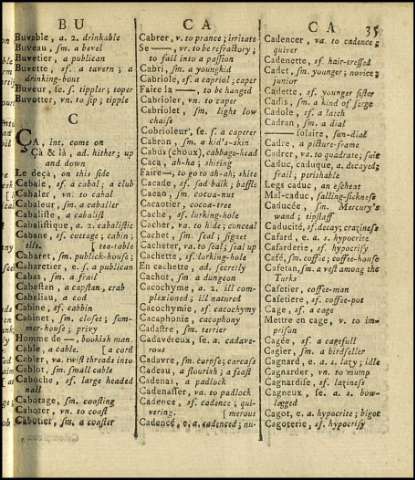 BU
Buvable, a. 2. drinkable
Buveau, ſm. a bevel
Buvetier, a publican
Buvette, ſf. a tavern; a
drinking-bout
Buveur, ſe, ſ. tippler; toper
Buvotter, vn. to ſip; tipple
C
ÇA, int. come on
Çà & là, ad. hither; up
and down
Le deçà, on this ſide
Cabale, ſf. a cabal; a club
Cabaler, vn. to cabal
Cabaleur, ſm. a caballer
Cabaliſte, a cabaliſt
Cabaliſtique, a. 2. cabaliſtic
Cabane, ſf. cottage; cabin;
[tea-table
Cabaret, ſm. publick-houſe;
Cabaretier, e, ſ. a publican
Cabas, ſm. a frail
Cabeſtan, a capſtan, crab
Cabeliau, a cod
Cabine, ſf. cabbin
Cabinet, ſm. cloſet; ſum-
mer-houſe; privy
Homme de —, bookiſh man
Cable, a cable. [a cord
Cabler, va. twiſt threads into
Cablot, ſm. ſmall cable
Caboche, ſf. large headed
nail
Cabotage, ſm. coaſting
Caboter, vn. to coaſt
Cabotier, ſm. a coaſter
CA
Cabrer, v. to prance; irritate
Se —, vr. to be refractory;
to fall into a paſſion
Cabri, ſm. a youngkid
Cabriole, ſf. a capriol; caper
Faire la —, to be hanged
Cabrioler, vn. to caper
Cabriolet, ſm. light low
chaiſe
Cabrioleur, ſe, ſ. a caperer
Cabron, ſm. a kid's-skin
Cabus (choux), cabbage-head
Caca, ah-ha; ſhiting
Faire —, to go to ah-ah; ſhite
Cacade, ſf. ſad balk; baffle
Cacao, ſm. cocoa-nut
Cacaotier, cocoa-tree
Cache, ſf. lurking-hole
Cacher, va. to hide; conceal
Cachet, ſm. ſeal; ſignet
Cacheter, va. to ſeal, ſeal up
Cachette, ſf. lurking-hole
En cachette, ad. ſecretly
Cachot, ſm. a dungeon
Cacochyme, a. 2. ill com-
plexioned; ill natured
Cacochymie, ſf. cacochymy
Cacaphonie, cacophony
Cadaſtre, ſm. terrier
Cadavéreux, ſe, a. cadave-
rous
Cadavre, ſm. corpſe; carcaſe
Cadeau, a flouriſh; a feaſt
Cadenas, a padlock
Cadenaſſer, va. to padlock
Cadence, ſf. cadence; qui-
vering. [merous
Cadencé, e, a. cadenced; nu-
CA
35
Cadencer, va. to cadence;
quiver
Cadenette, ſf. hair-treſſed
Cadet, ſm. younger; novice;
junior
Cadette, ſf. younger ſiſter
Cadis, ſm. a kind of ſerge
Cadole, ſf. a latch
Cadran, ſm. a dial
— ſolaire, ſun-dial
Cadre, a picture-frame
Cadrer, va. to quadrate; ſuit
Caduc, caduque, a. decayed;
frail, periſhable
Legs caduc, an eſcheat
Mal-caduc, falling-ſickneſs
Caducée, ſm. Mercury's
wand; tipſtaff
Caducité, ſf. decay; crazineſs
Cafard, e, a. ſ. hypocrite
Cafarderie, ſf. hypocriſy
Café, ſm. coffee; coffee-houſe
Cafetan, ſm. a veſt among the
Turks
Cafetier, coffee-man
Cafetiere, ſf. coffee-pot
Cage, ſf. a cage
Mettre en cage, v. to im-
priſon
Cagée, ſf. a cagefull
Cagier, ſm. a birdſeller
Cagnard, e, a. ſ. lazy; idle
Cagnarder, vn. to mump
Cagnardiſe, ſf. lazineſs
Cagneux, ſe, a. ſ. bow-
legged
Cagot, e, a. hypocrite; bigot
Cagoterie, ſf. hypocriſy